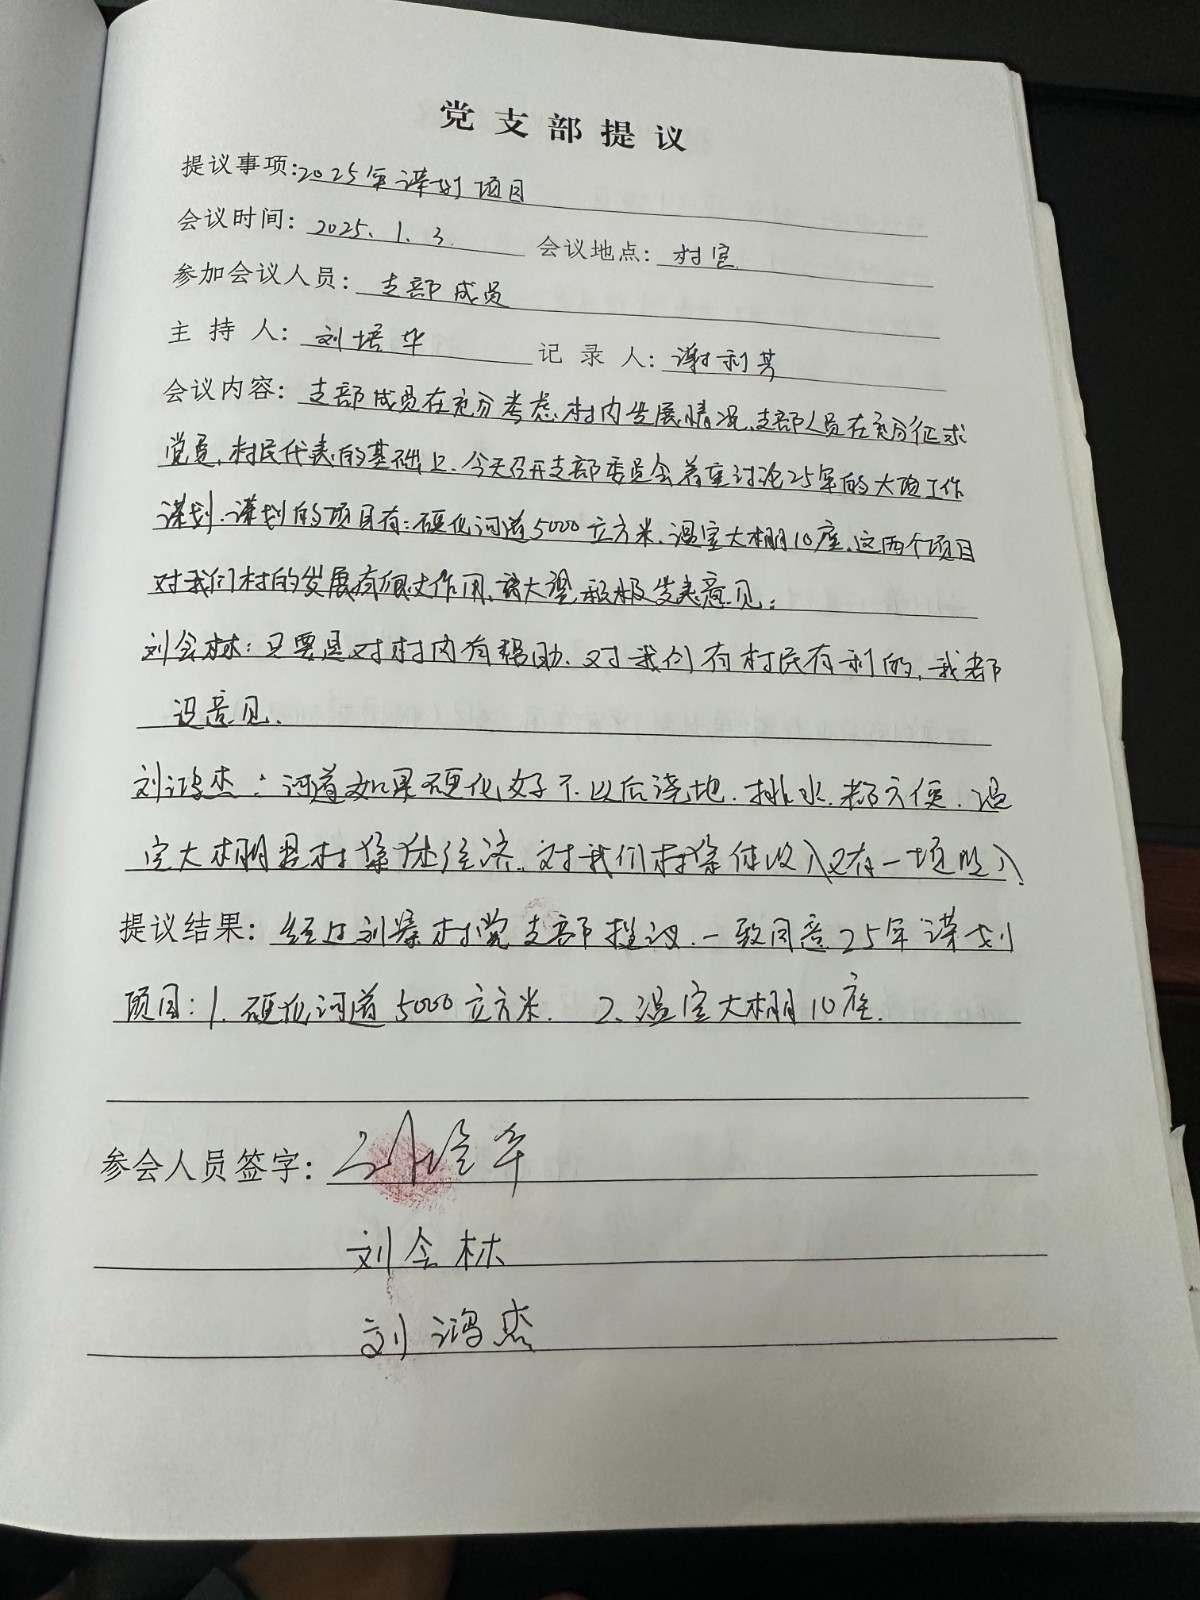 党支部提议
提议事项:2025年谋划项目
会议时间: 2025.1.3. 会议地点: 村室
参加会议人员: 支部成员
主持人: 刘培华 记录人: 谢利芳
会议内容: 支部成员在充分考虑村内发展情况,支部人员在充分征求
党员,村民代表的基础上.今天召开支部委员会着重讨论25年的大项工作
谋划.谋划的项目有:硬化河道5000立方米.温室大棚10座.这两个项目
对我们村的发展有很大作用,请大家积极发表意见:
刘会林:只要是对村内有帮助.对我们有村民有利的,我都
没意见.
刘鸿杰:河道如果硬化好了.以后浇地.排水.都方便.温
室大棚是村集体经济.对我们村集体收入又有一项收入.
提议结果: 经过刘寨村党支部提议.一致同意25年谋划
项目:1.硬化河道5000立方米. 2、温室大棚10座.
参会人员签字: 刘培华
刘会林
刘鸿杰